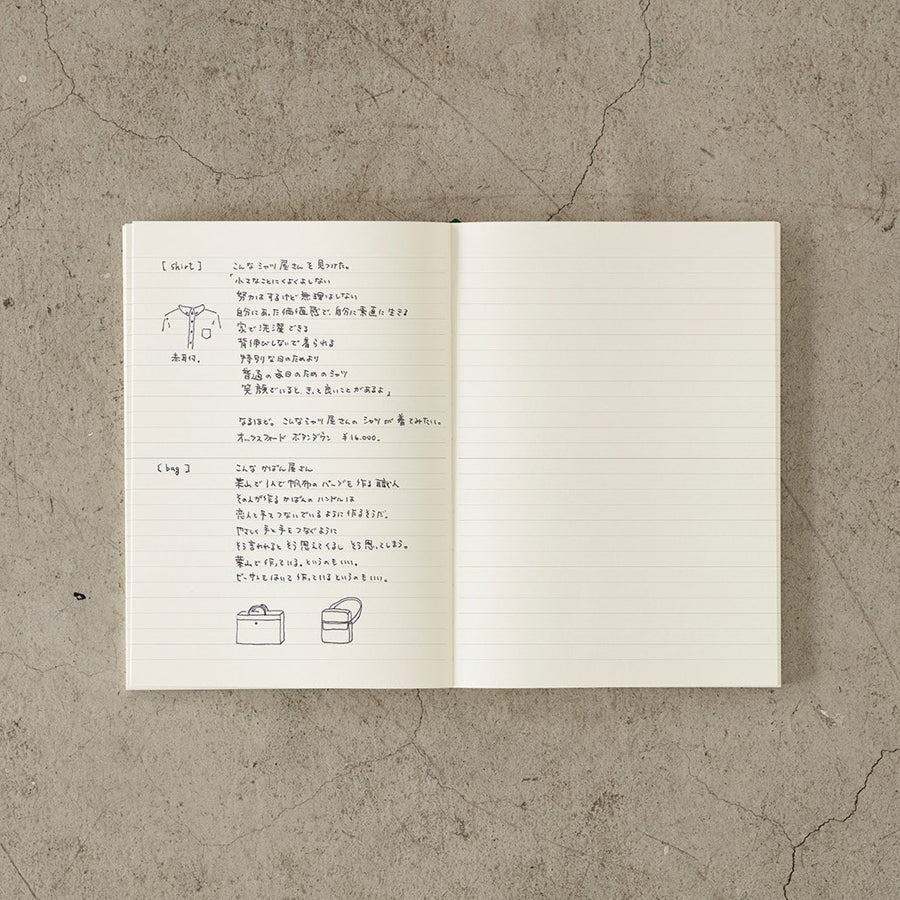 [shirt]
こんな シャツ 屋さん を 見つけた。
「小さなことにくよくよしない
努力はするけど 無理はしない
自分にあった価値感で、自分に素直に生きる
家で洗濯できる
背伸びしないで着られる
特別な日のためより
普通の毎日のためのシャツ
笑顔でいると、きっと良いことがあるよ」
なるほど。こんなシャツ屋さんの シャツが 着てみたい。
オックスフォード ボタンダウン ¥16.000.
[bag]
こんな かばん屋さん
葉山で1人で帆布の バッグを 作る 職人
その人が作る かばんの ハンドルは
恋人と手をつないでいるように作るそうだ。
やさしく 手と手を つなぐように
そう言われると そう 思えてくるし そう 思ってしまう。
葉山で 作っている。というのもいい。
ビーサンをはいて 作っているというのもいい。